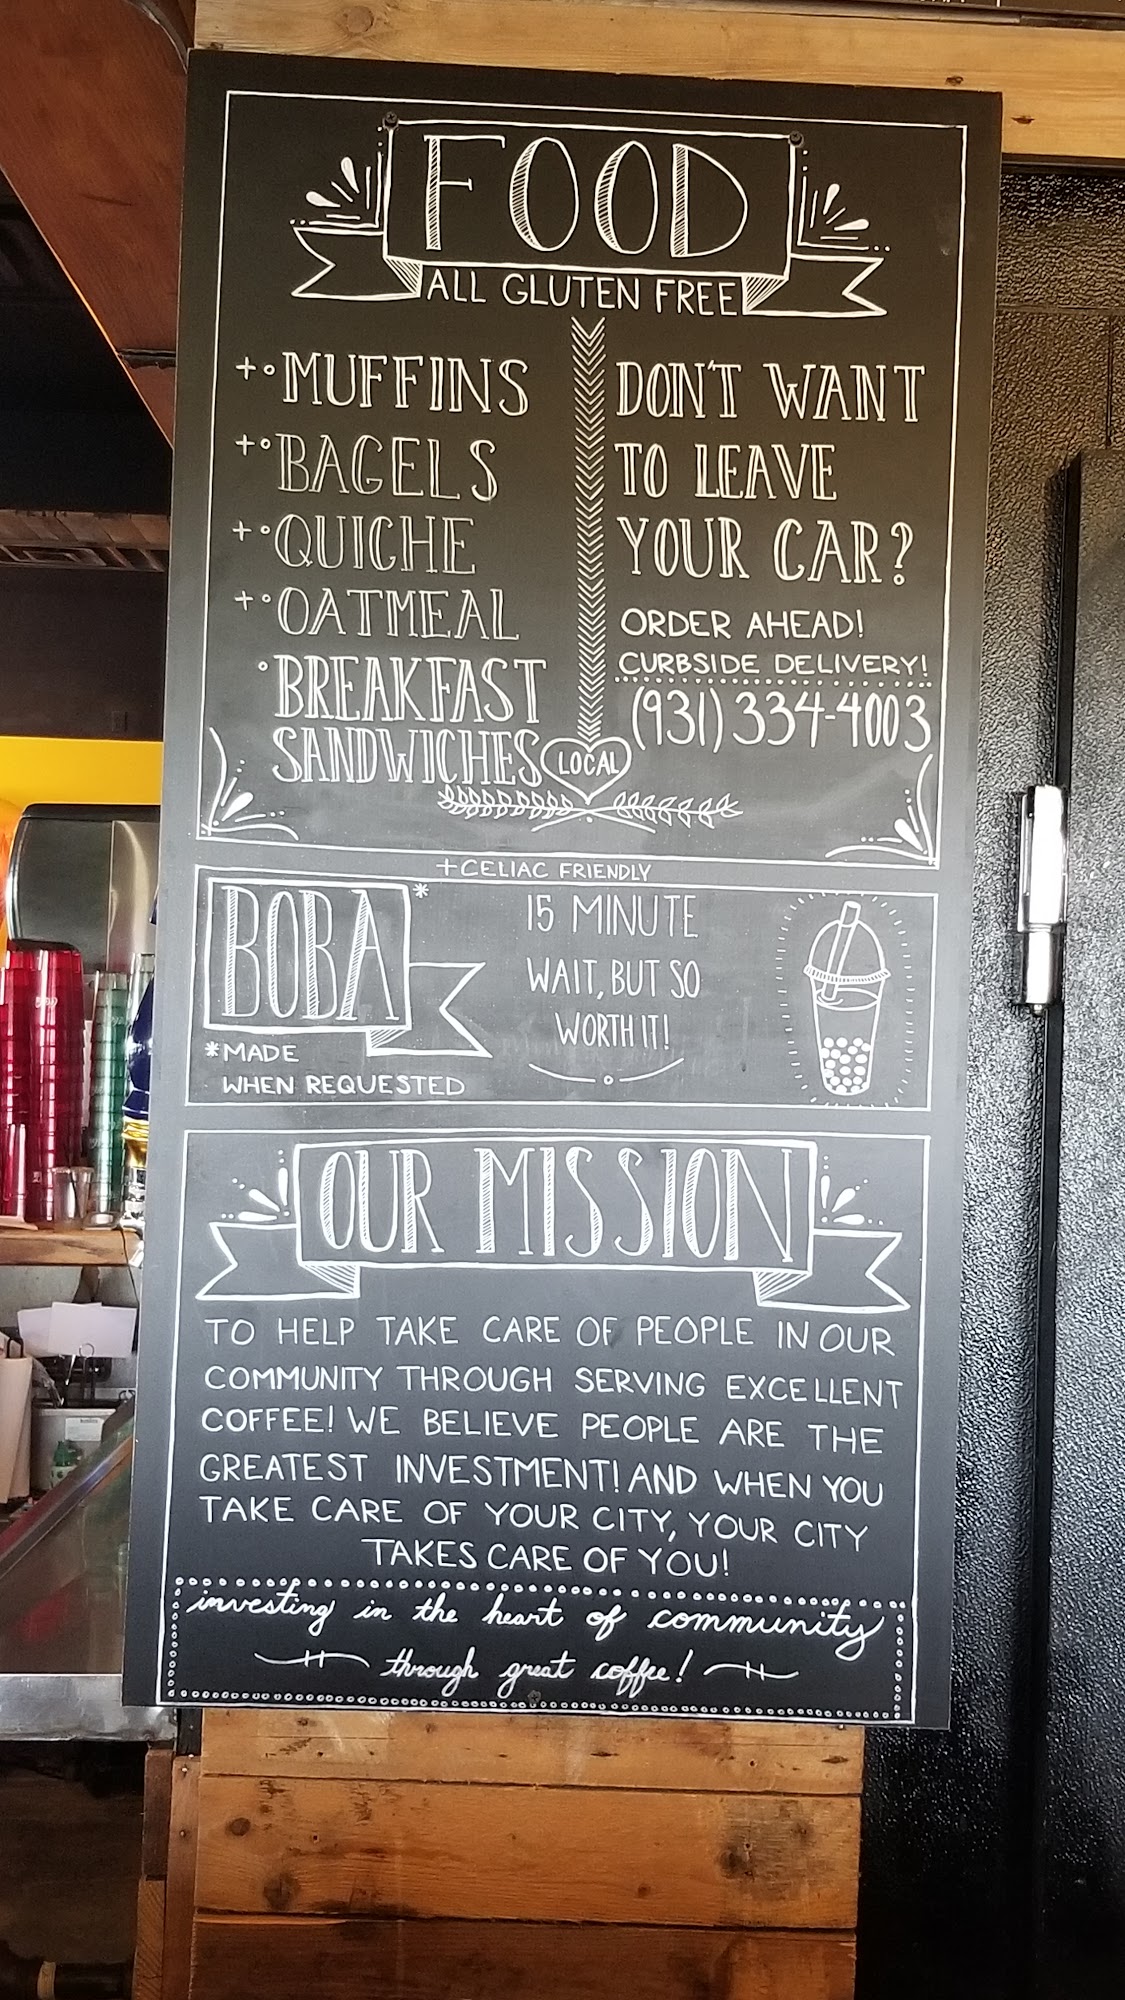 FOOD
ALL GLUTEN FREE
+°MUFFINS
+°BAGELS
+°QUICHE
+°OATMEAL
°BREAKFAST
SANDWICHES
DON'T WANT
TO LEAVE
YOUR CAR?
ORDER AHEAD!
CURBSIDE DELIVERY!
(931) 334-4003
LOCAL
+CELIAC FRIENDLY
BOBA*
*MADE
WHEN REQUESTED
15 MINUTE
WAIT, BUT SO
WORTH IT!
OUR MISSION
TO HELP TAKE CARE OF PEOPLE IN OUR
COMMUNITY THROUGH SERVING EXCELLENT
COFFEE! WE BELIEVE PEOPLE ARE THE
GREATEST INVESTMENT! AND WHEN YOU
TAKE CARE OF YOUR CITY, YOUR CITY
TAKES CARE OF YOU!
investing in the heart of community
through great coffee!